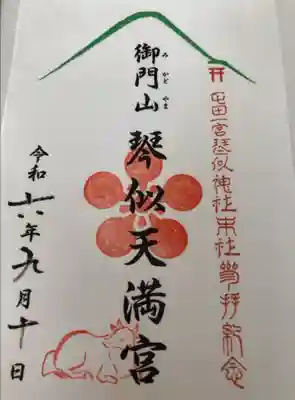 屯田一宮琴似神社末社参拝紀念
御門山 琴似天満宮
み かど やま
令和六年九月十日